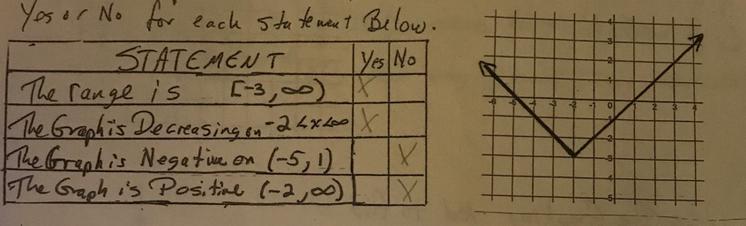 Yes or No for each statement Below.
STATEMENT Yes No
The range is [-3, ∞) X
The Graph is Decreasing on -2 < x < ∞ X
The Graph is Negative on (-5, 1) X
The Graph is Positive (-2, ∞) X